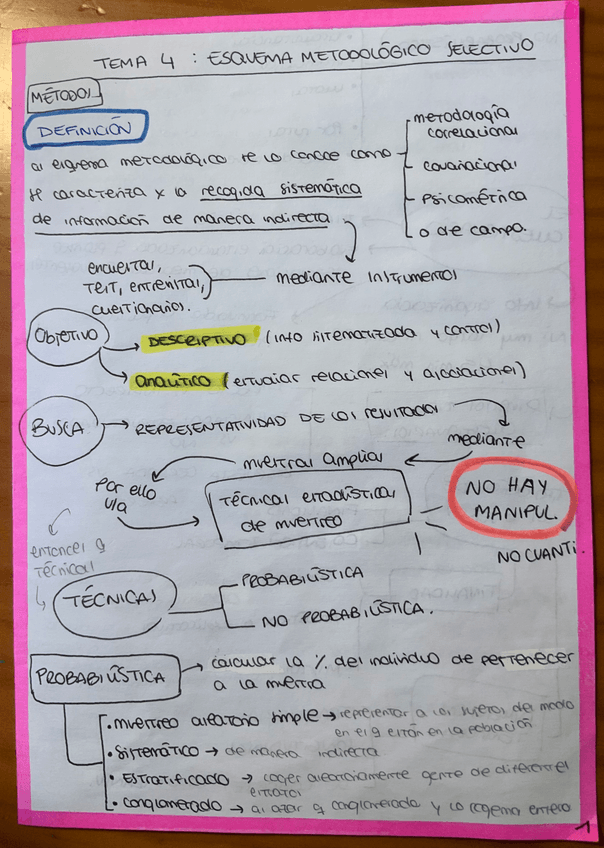 TEMA 4 : ESQUEMA METODOLÓGICO SELECTIVO
MÉTODOS
DEFINICIÓN
al esquema metodológico se lo conoce como
metodología correlacional
covariacional
psicométrica
o de campo.
se caracteriza x la recogida sistemática
de información de manera indirecta
mediante instrumentos
encuestas,
test, entrevistas,
cuestionarios.
Objetivo
DESCRIPTIVO (info sistematizada y control)
ANALÍTICO (estudiar relaciones y asociaciones)
BUSCA
REPRESENTATIVIDAD DE LOS RESULTADOS
mediante
muestras amplias
Por ello
usa
TÉCNICAS estadísticas
de muestreo
NO HAY
MANIPUL.
NO CUANTI.
entonces q
técnicas
TÉCNICAS
PROBABILÍSTICA
NO PROBABILÍSTICA.
PROBABILÍSTICA
calcular la % del individuo de pertenecer
a la muestra
• muestreo aleatorio simple → representar a los sujetos del modo
en el q están en la población
• SISTEMÁTICO → de manera indirecta
• ESTRATIFICADO → coger aleatoriamente gente de diferentes
estratos
• conglomerado → al azar q conglomerado y lo cogemos entero
1